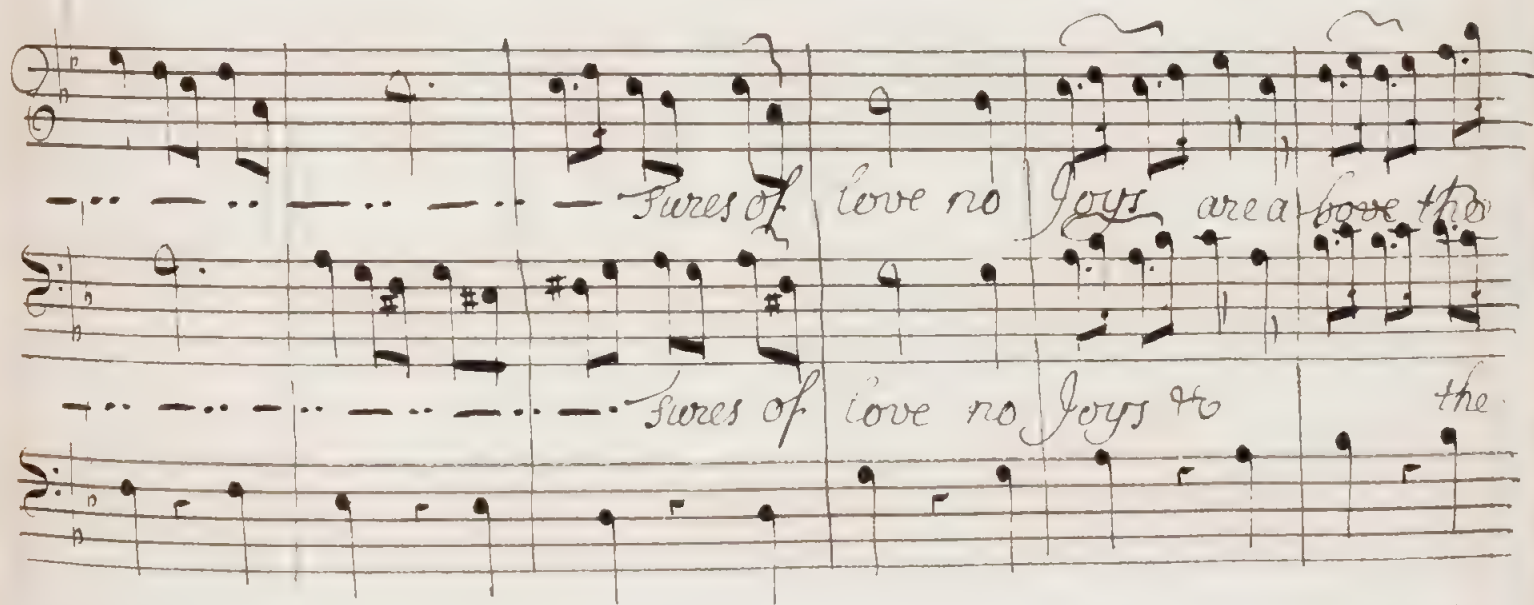 sures of love no Joys are above the
sures of love no Joys &c the